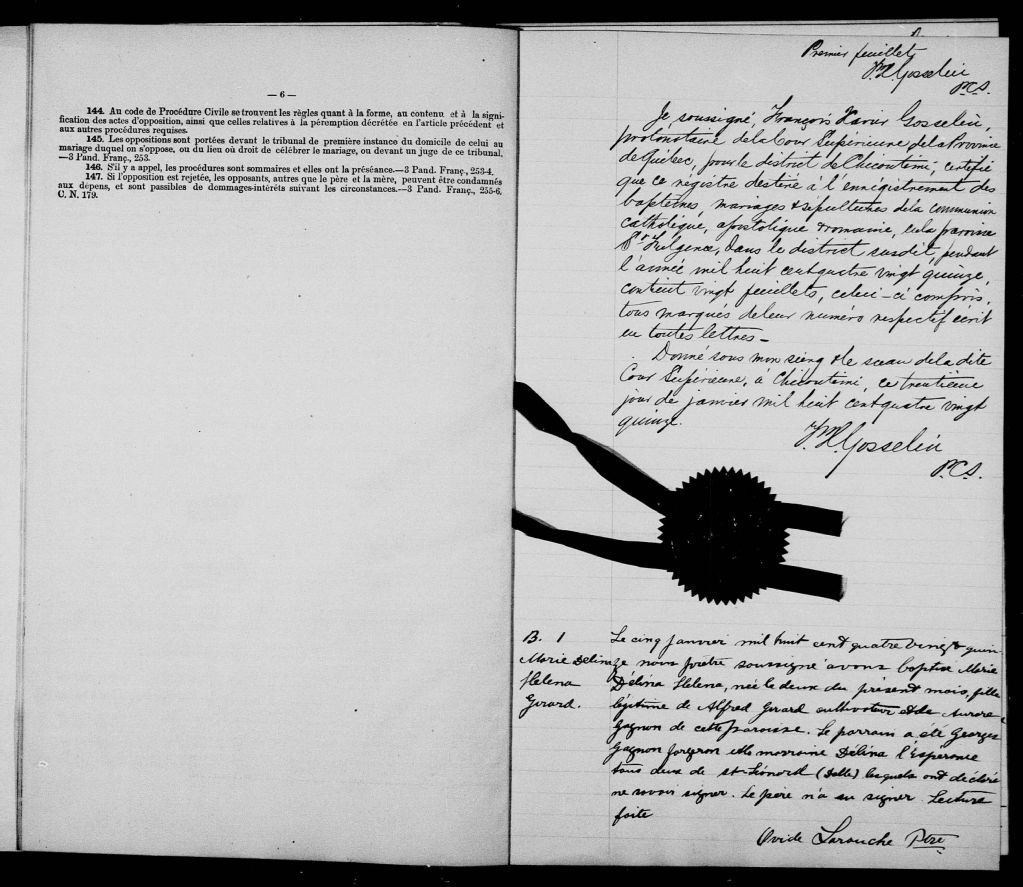 — 6 —
144. Au code de Procédure Civile se trouvent les règles quant à la forme, au contenu et à la signi-
fication des actes d'opposition, ainsi que celles relatives à la péremption décrétée en l'article précédent et
aux autres procédures requises.
145. Les oppositions sont portées devant le tribunal de première instance du domicile de celui au
mariage duquel on s'oppose, ou du lieu où droit de célébrer le mariage, ou devant un juge de ce tribunal.
—3 Pand. Franç., 253.
146. S'il y a appel, les procédures sont sommaires et elles ont la préséance.—3 Pand. Franç., 253-4.
147. Si l'opposition est rejetée, les opposants, autres que le père et la mère, peuvent être condamnés
aux dépens, et sont passibles de dommages-intérêts suivant les circonstances.—3 Pand. Franç., 255-6.
C. N. 179.
Premier feuillet
F.X. Gosselin
P.C.S.
Je soussigné, François Xavier Gosselin,
protonotaire de la Cour Supérieure de la Province
de Québec, pour le district de Chicoutimi, certifie
que ce régistre destiné à l'enregistrement des
baptêmes, mariages & sépultures de la communion
catholique, apostolique & romaine, en la paroisse
St Fulgence, dans le district susdit, pendant
l'année mil huit cent quatre vingt quinze,
contient vingt feuillets, celui-ci compris,
tous marqués de leur numéro respectif écrit
en toutes lettres —
Donné sous mon seing & le sceau de la dite
Cour Supérieure, à Chicoutimi, ce trentième
jour de janvier mil huit cent quatre vingt
quinze.
F.X. Gosselin
P.C.S.
B. 1
Marie Délina
Helena
Girard.
Le cinq janvier mil huit cent quatre vingt quin-
ze nous prêtre soussigné avons baptisé Marie
Délina Helena, née le deux du présent mois, fille
légitime de Alfred Girard cultivateur et de Aurore
Gagnon de cette paroisse. Le parrain a été Georges
Gagnon forgeron et la marraine Délina l'Esperance
tous deux de st-Léonard (salle) lesquels ont déclaré
ne savoir signer. Le père n'a su signer. Lecture
faite
Ovide Larouche Ptre